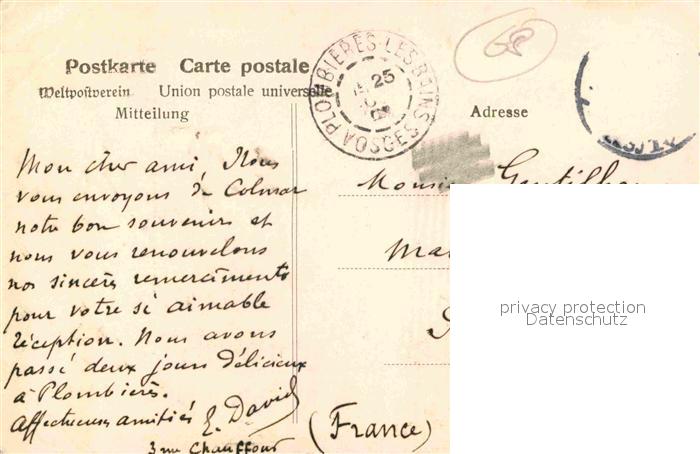 Postkarte Carte postale
Weltpostverein Union postale universelle
Mitteilung
Adresse
PLOMBIÈRES-LES-BAINS
25
VOSGES
68
Mon cher ami, Nous
vous envoyons de Colmar
notre bon souvenir et
nous vous renouvelons
nos sincères remerciments
pour votre si aimable
réception. Nous avons
passé deux jours délicieux
à Plombières.
Affectueuses amitiés E. David
3 rue Chauffour
(France)
privacy protection
Datenschutz